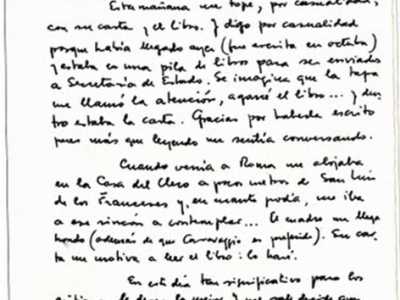 Esta mañana me topé, por casualidad,
con su carta y el libro. Y digo por casualidad
porque había llegado ayer (fue escrita en octubre)
y estaba en una pila de libros para ser enviados
a Secretaría de Estado. Se imagina que la tapa
me llamó la atención, agarré el libro... y den-
tro estaba la carta. Gracias por haberla escrito
pues más que leyendo me sentía conversando.
Cuando venía a Roma me alojaba
en la Casa del Clero a pocos metros de San Luis
de los Franceses y, en cuanto podía, me iba
a ese rincón a contemplar... El cuadro me llega
hondo (además de que Caravaggio es preferido). Su car-
ta me motiva a leer el libro: lo haré.
En este día tan significativo para los